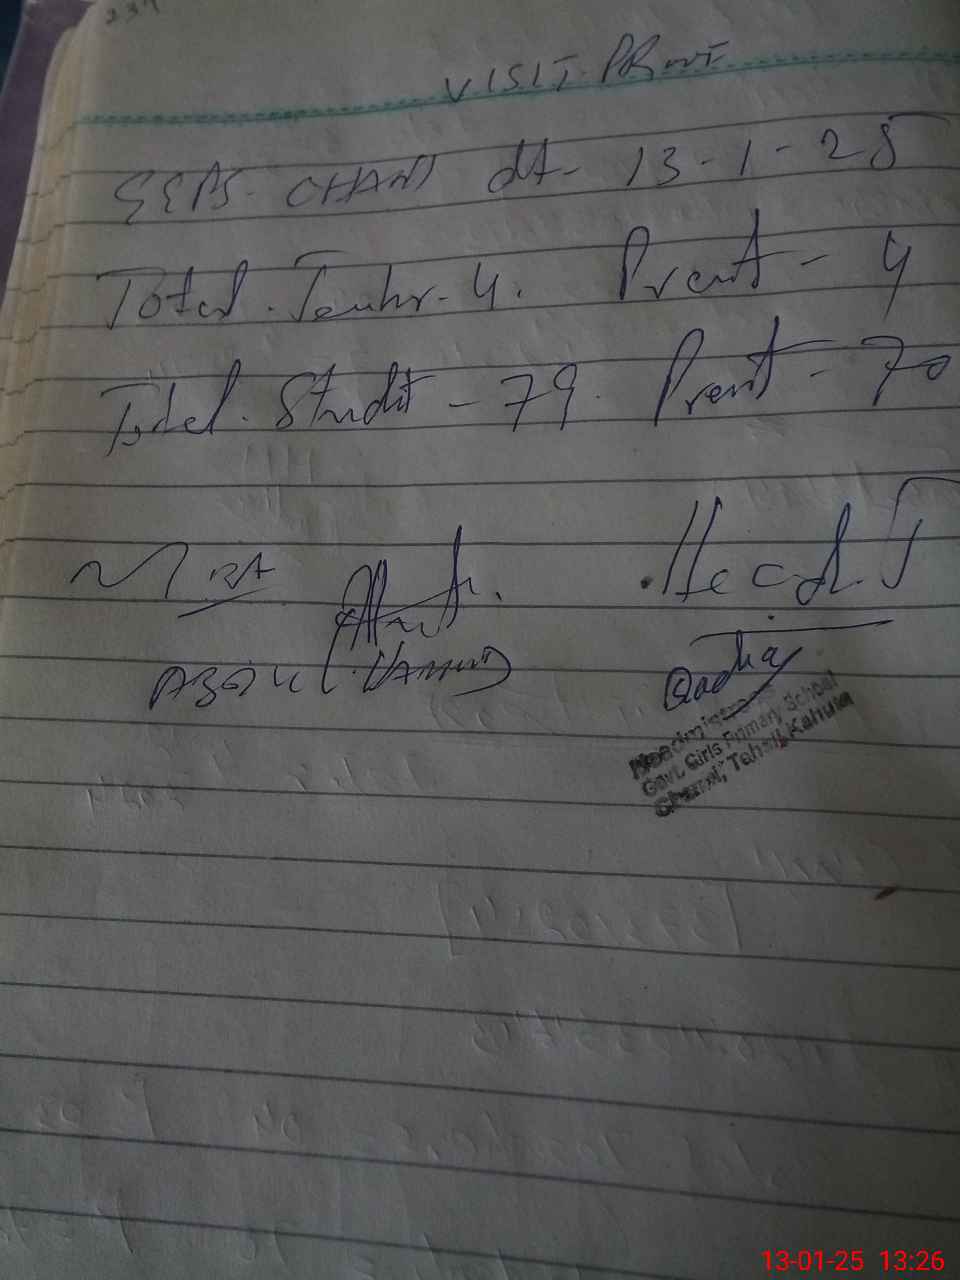 237
VISIT. PROOF
GGPS- CHANOI dt- 13-1-25
Total. Teacher-4. Present - 4
Total. Student - 79. Present - 70
Head T
ABDUL HAMEED
Headmistress
Govt. Girls Primary School
Chanoi, Tehsil Kahuta
13-01-25 13:26